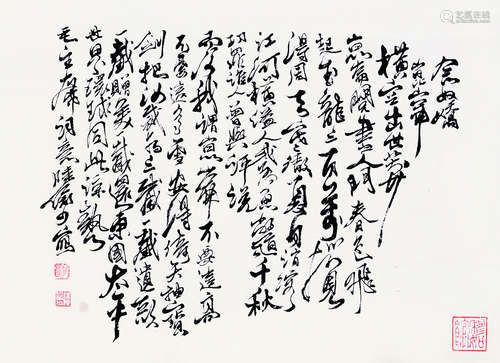 念奴嬌
崑崙
橫空出世莽
崑崙閱盡人间春色飛
起玉龍三百萬攪
得周天寒徹夏日消溶
江河橫溢人或為魚鱉千秋
功罪誰人曾與評說
而今我謂崑崙不要這高
不要這多雪安得倚天抽寶
劍把汝裁為三截一截遺歐
一截贈美一截還東國太平
世界環球同此涼熱
毛主席詞意陸儼少寫
艺狐在线